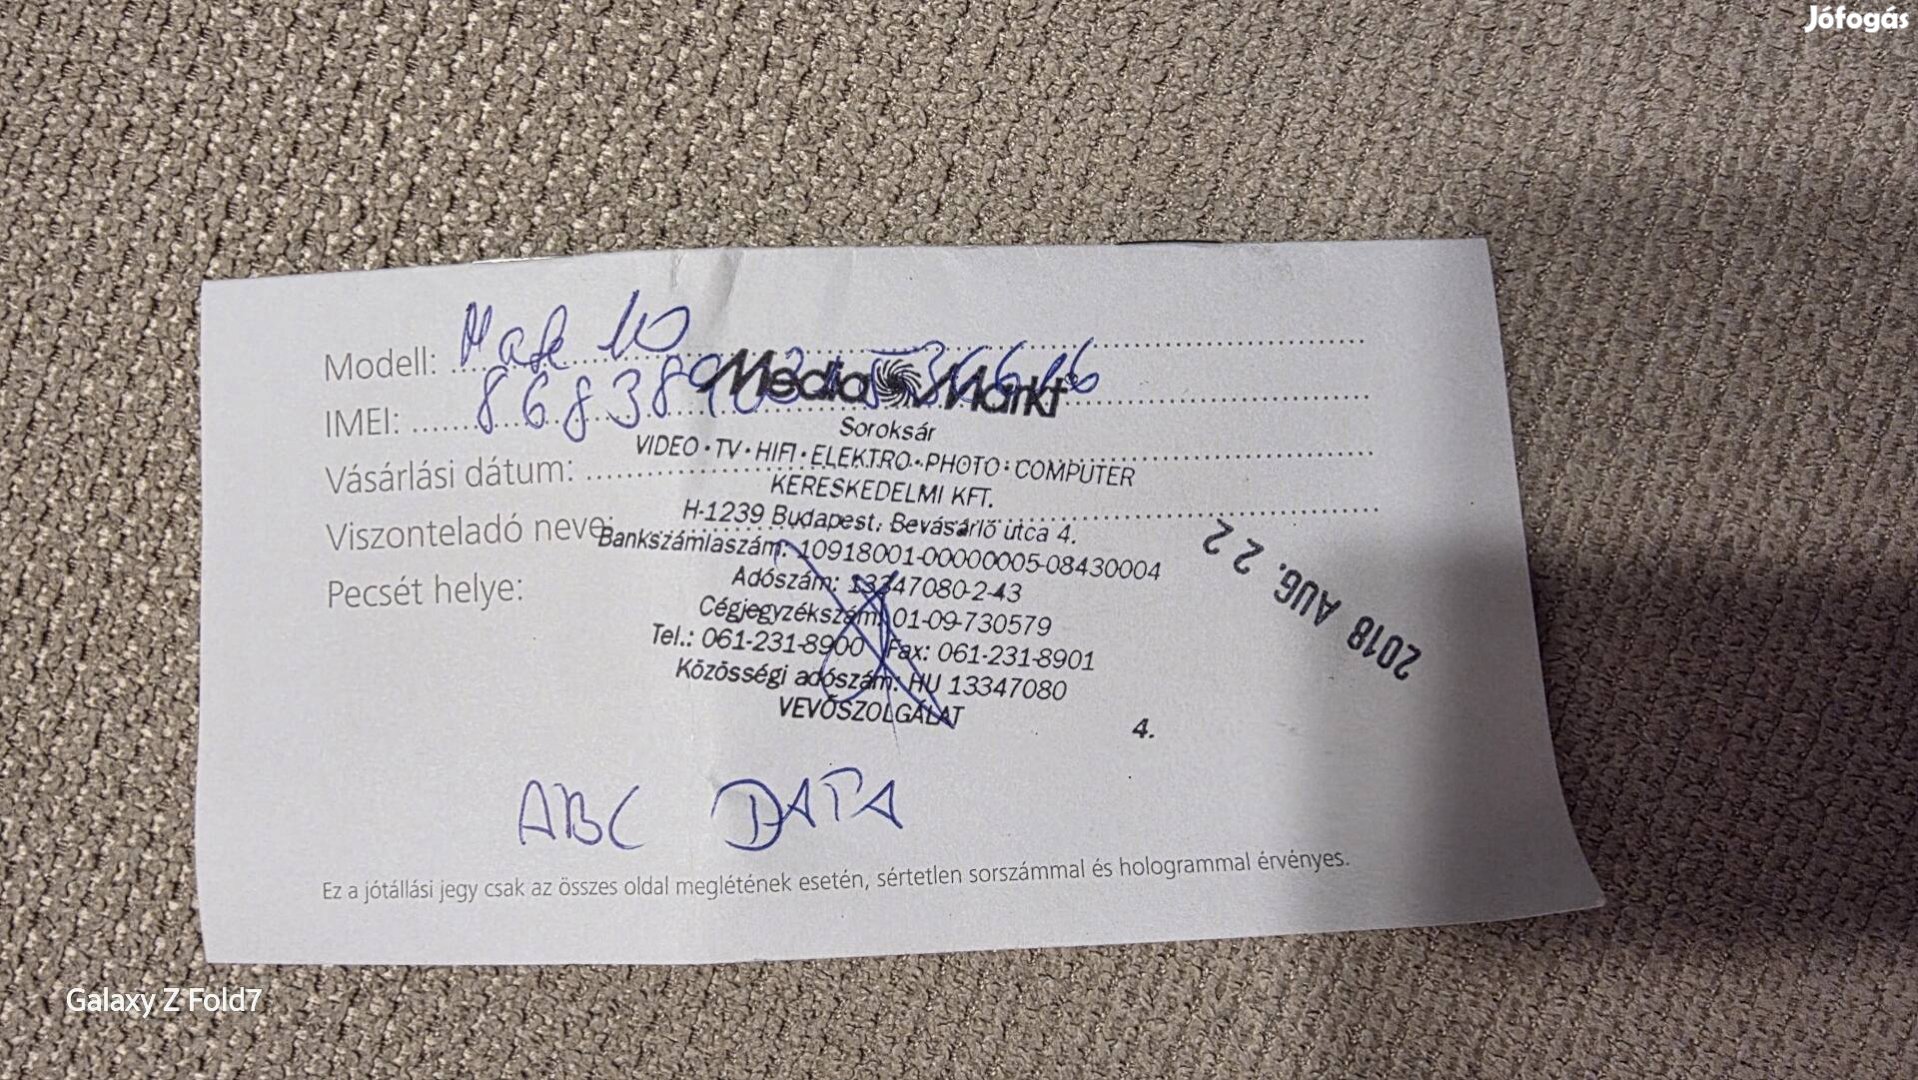 Jófogás
Modell: Mate 10
IMEI:
Media Markt
Soroksár
Vásárlási dátum:
VIDEO • TV • HIFI • ELEKTRO • PHOTO • COMPUTER
KERESKEDELMI KFT.
Viszonteladó neve:
H-1239 Budapest, Bevásárló utca 4.
Bankszámlaszám: 10918001-00000005-08430004
Pecsét helye:
Adószám: 13347080-2-43
Cégjegyzékszám: 01-09-730579
Tel.: 061-231-8900 Fax: 061-231-8901
Közösségi adószám: HU 13347080
VEVŐSZOLGÁLAT
4.
2018 AUG. 22
ABC DATA
Ez a jótállási jegy csak az összes oldal meglétének esetén, sértetlen sorszámmal és hologrammal érvényes.
Galaxy Z Fold7